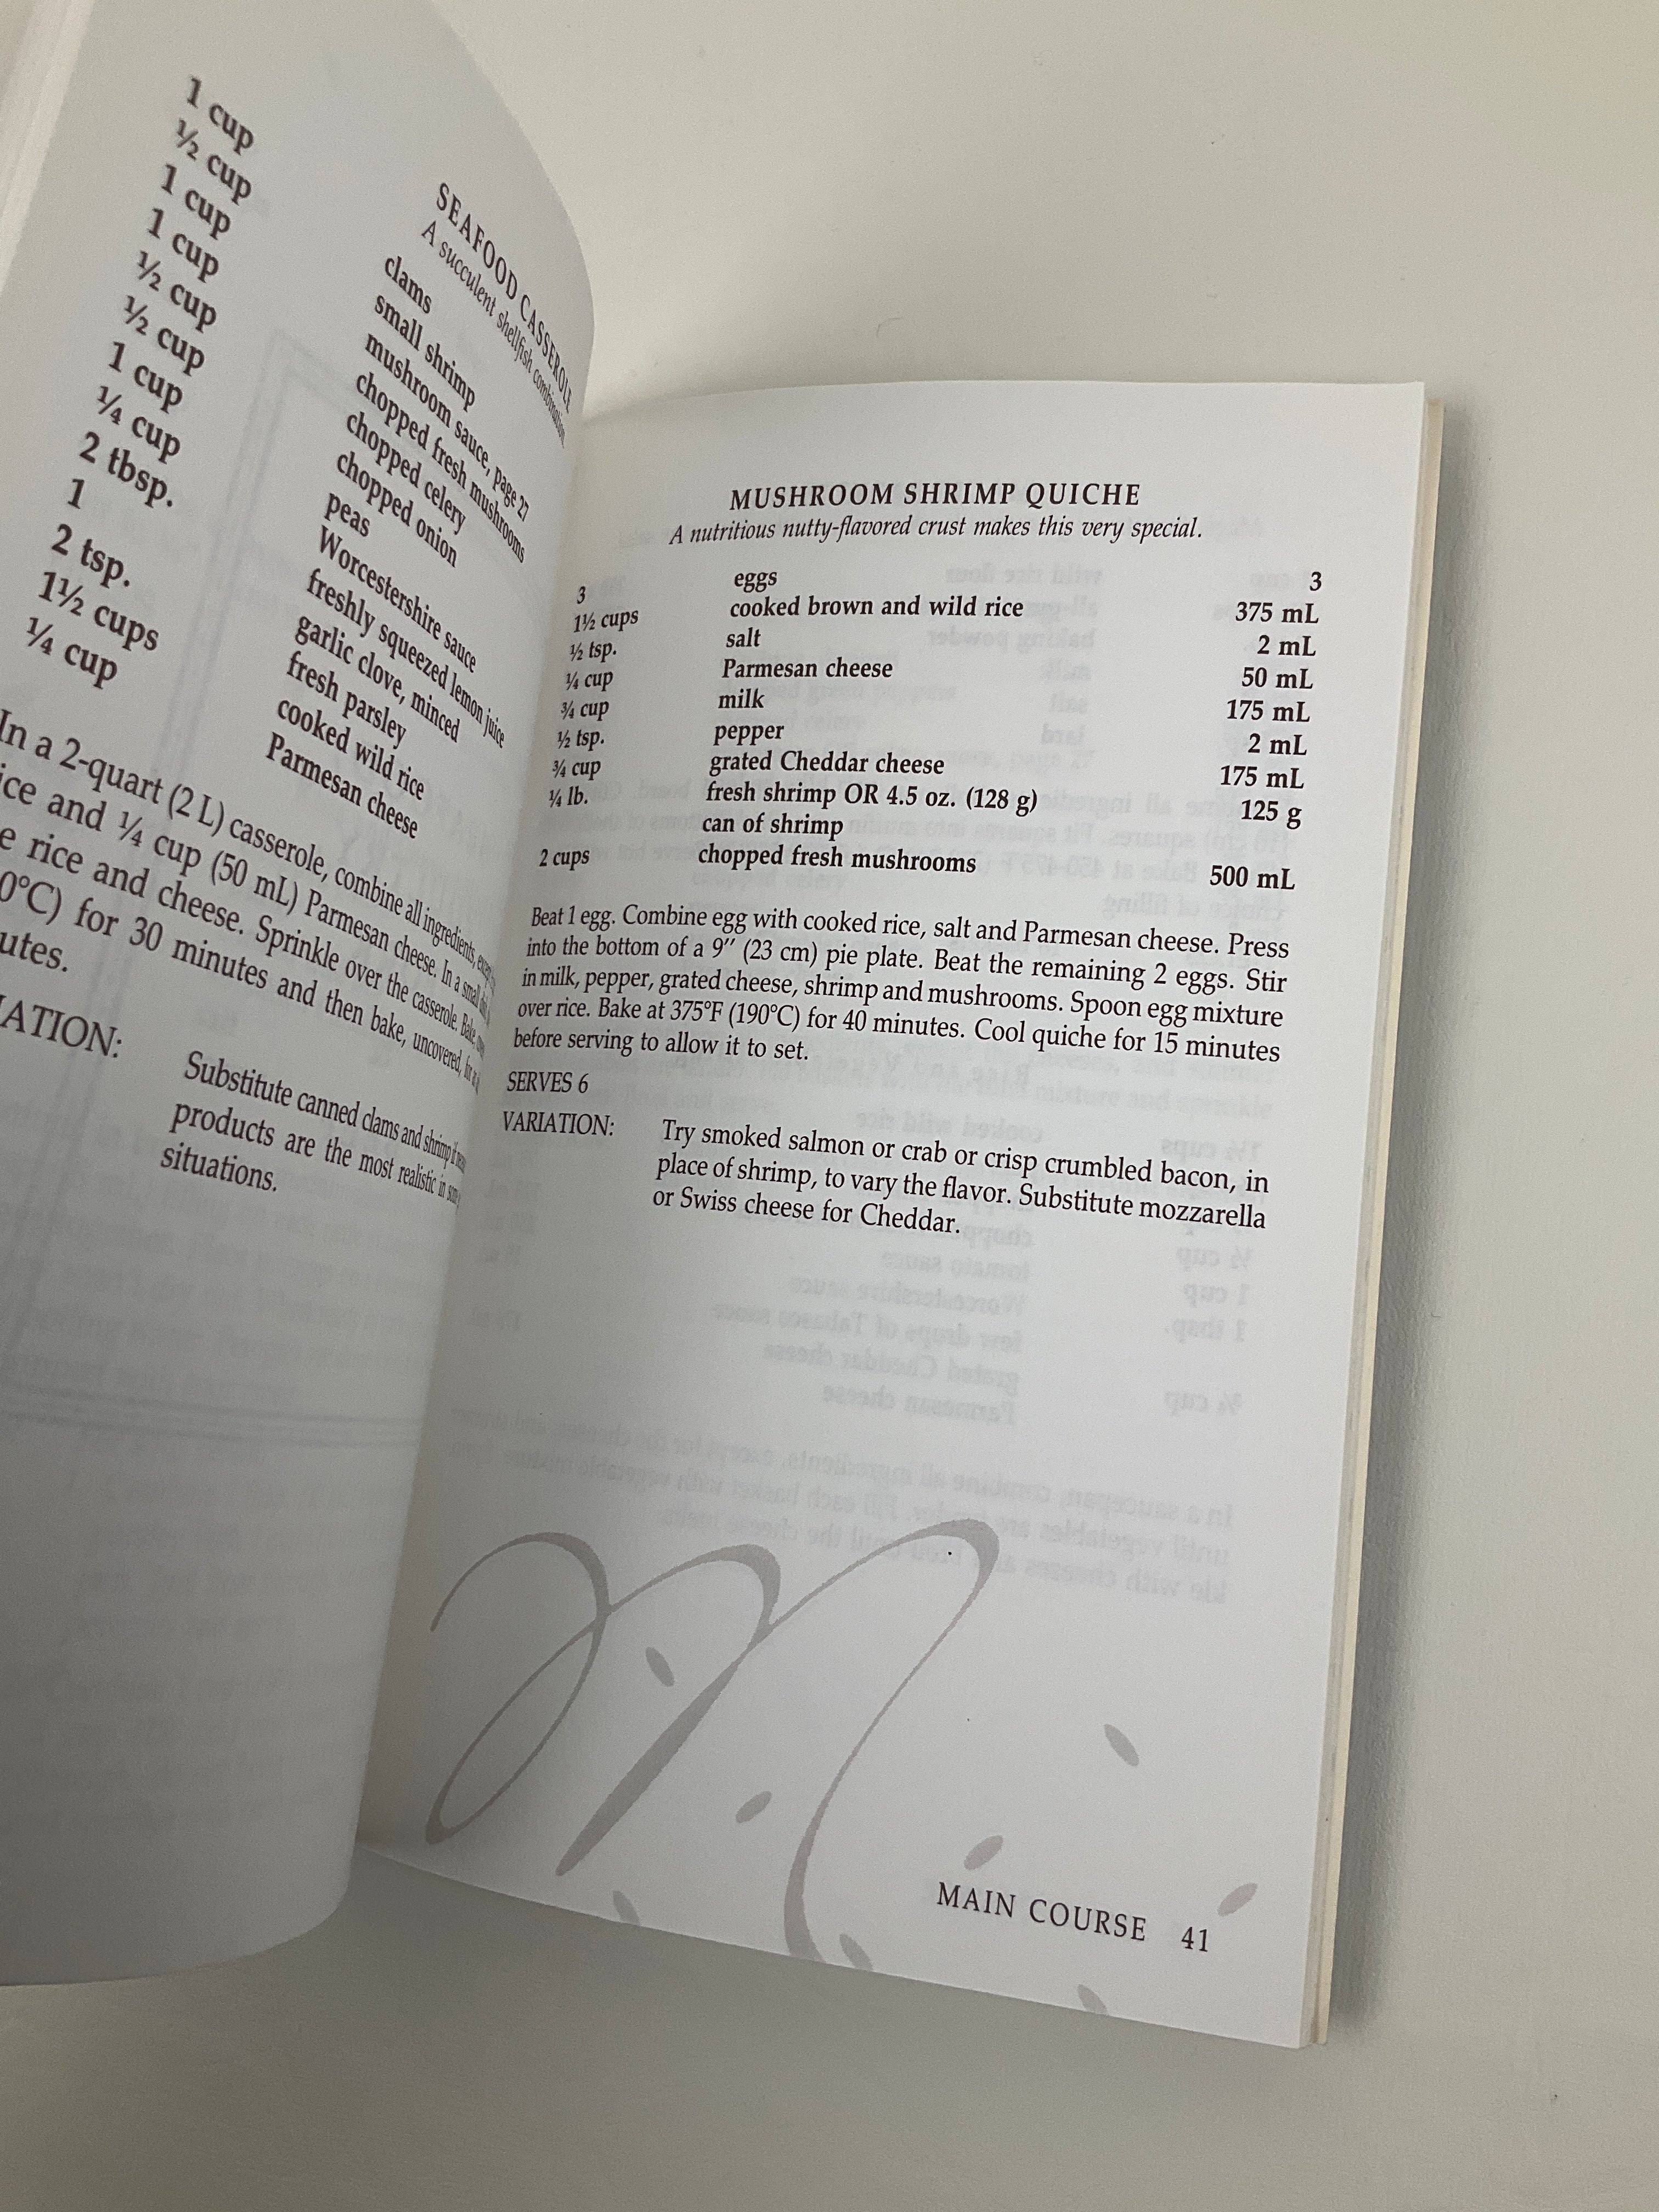 SEAFOOD CASSEROLE
A succulent shellfish combination.
1 cup clams
½ cup small shrimp
1 cup mushroom sauce, page 27
1 cup chopped fresh mushrooms
½ cup chopped celery
½ cup chopped onion
1 cup peas
¼ cup Worcestershire sauce
2 tbsp. freshly squeezed lemon juice
1 garlic clove, minced
2 tsp. fresh parsley
1½ cups cooked wild rice
¼ cup Parmesan cheese
In a 2-quart (2 L) casserole, combine all ingredients,
ice and ¼ cup (50 mL) Parmesan cheese. In a small
e rice and cheese. Sprinkle over the casserole. Bake,
0°C) for 30 minutes and then bake, uncovered, for
utes.
IATION: Substitute canned clams and shrimp if
products are the most realistic in
situations.
MUSHROOM SHRIMP QUICHE
A nutritious nutty-flavored crust makes this very special.
3 eggs 3
1½ cups cooked brown and wild rice 375 mL
½ tsp. salt 2 mL
¼ cup Parmesan cheese 50 mL
¾ cup milk 175 mL
½ tsp. pepper 2 mL
¾ cup grated Cheddar cheese 175 mL
¼ lb. fresh shrimp OR 4.5 oz. (128 g) 125 g
can of shrimp
2 cups chopped fresh mushrooms 500 mL
Beat 1 egg. Combine egg with cooked rice, salt and Parmesan cheese. Press
into the bottom of a 9" (23 cm) pie plate. Beat the remaining 2 eggs. Stir
in milk, pepper, grated cheese, shrimp and mushrooms. Spoon egg mixture
over rice. Bake at 375°F (190°C) for 40 minutes. Cool quiche for 15 minutes
before serving to allow it to set.
SERVES 6
VARIATION: Try smoked salmon or crab or crisp crumbled bacon, in
place of shrimp, to vary the flavor. Substitute mozzarella
or Swiss cheese for Cheddar.
MAIN COURSE 41